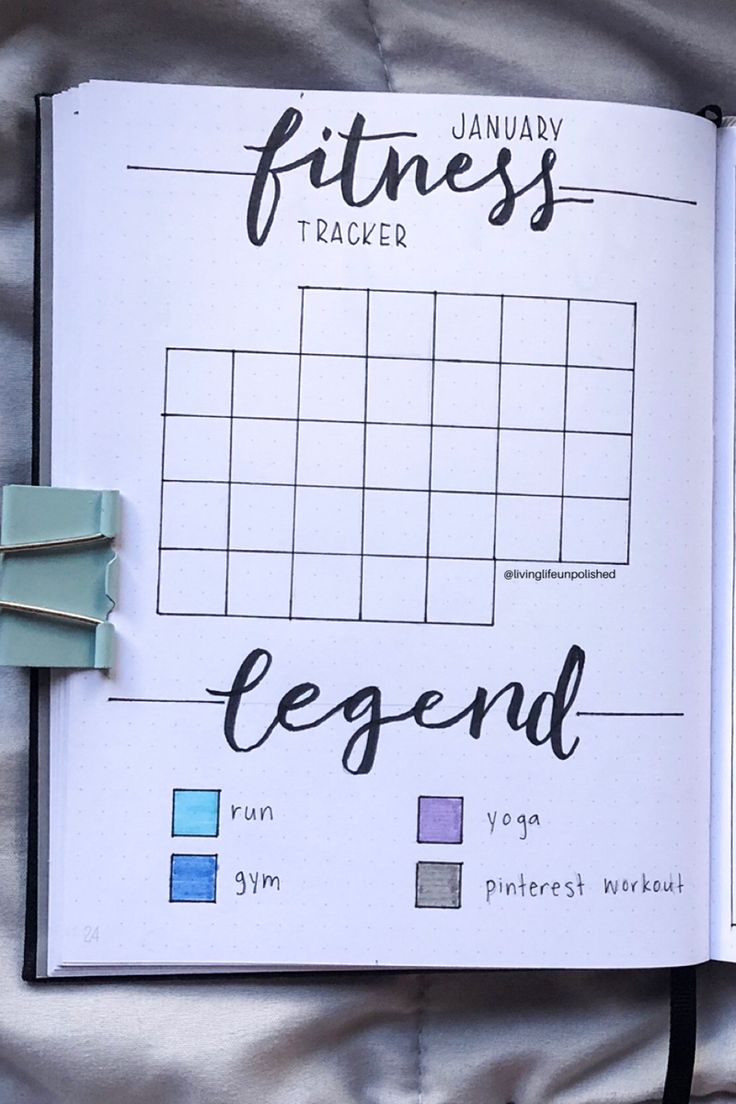 JANUARY
fitness
TRACKER
@livinglifeunpolished
legend
run
yoga
gym
pinterest workout
24